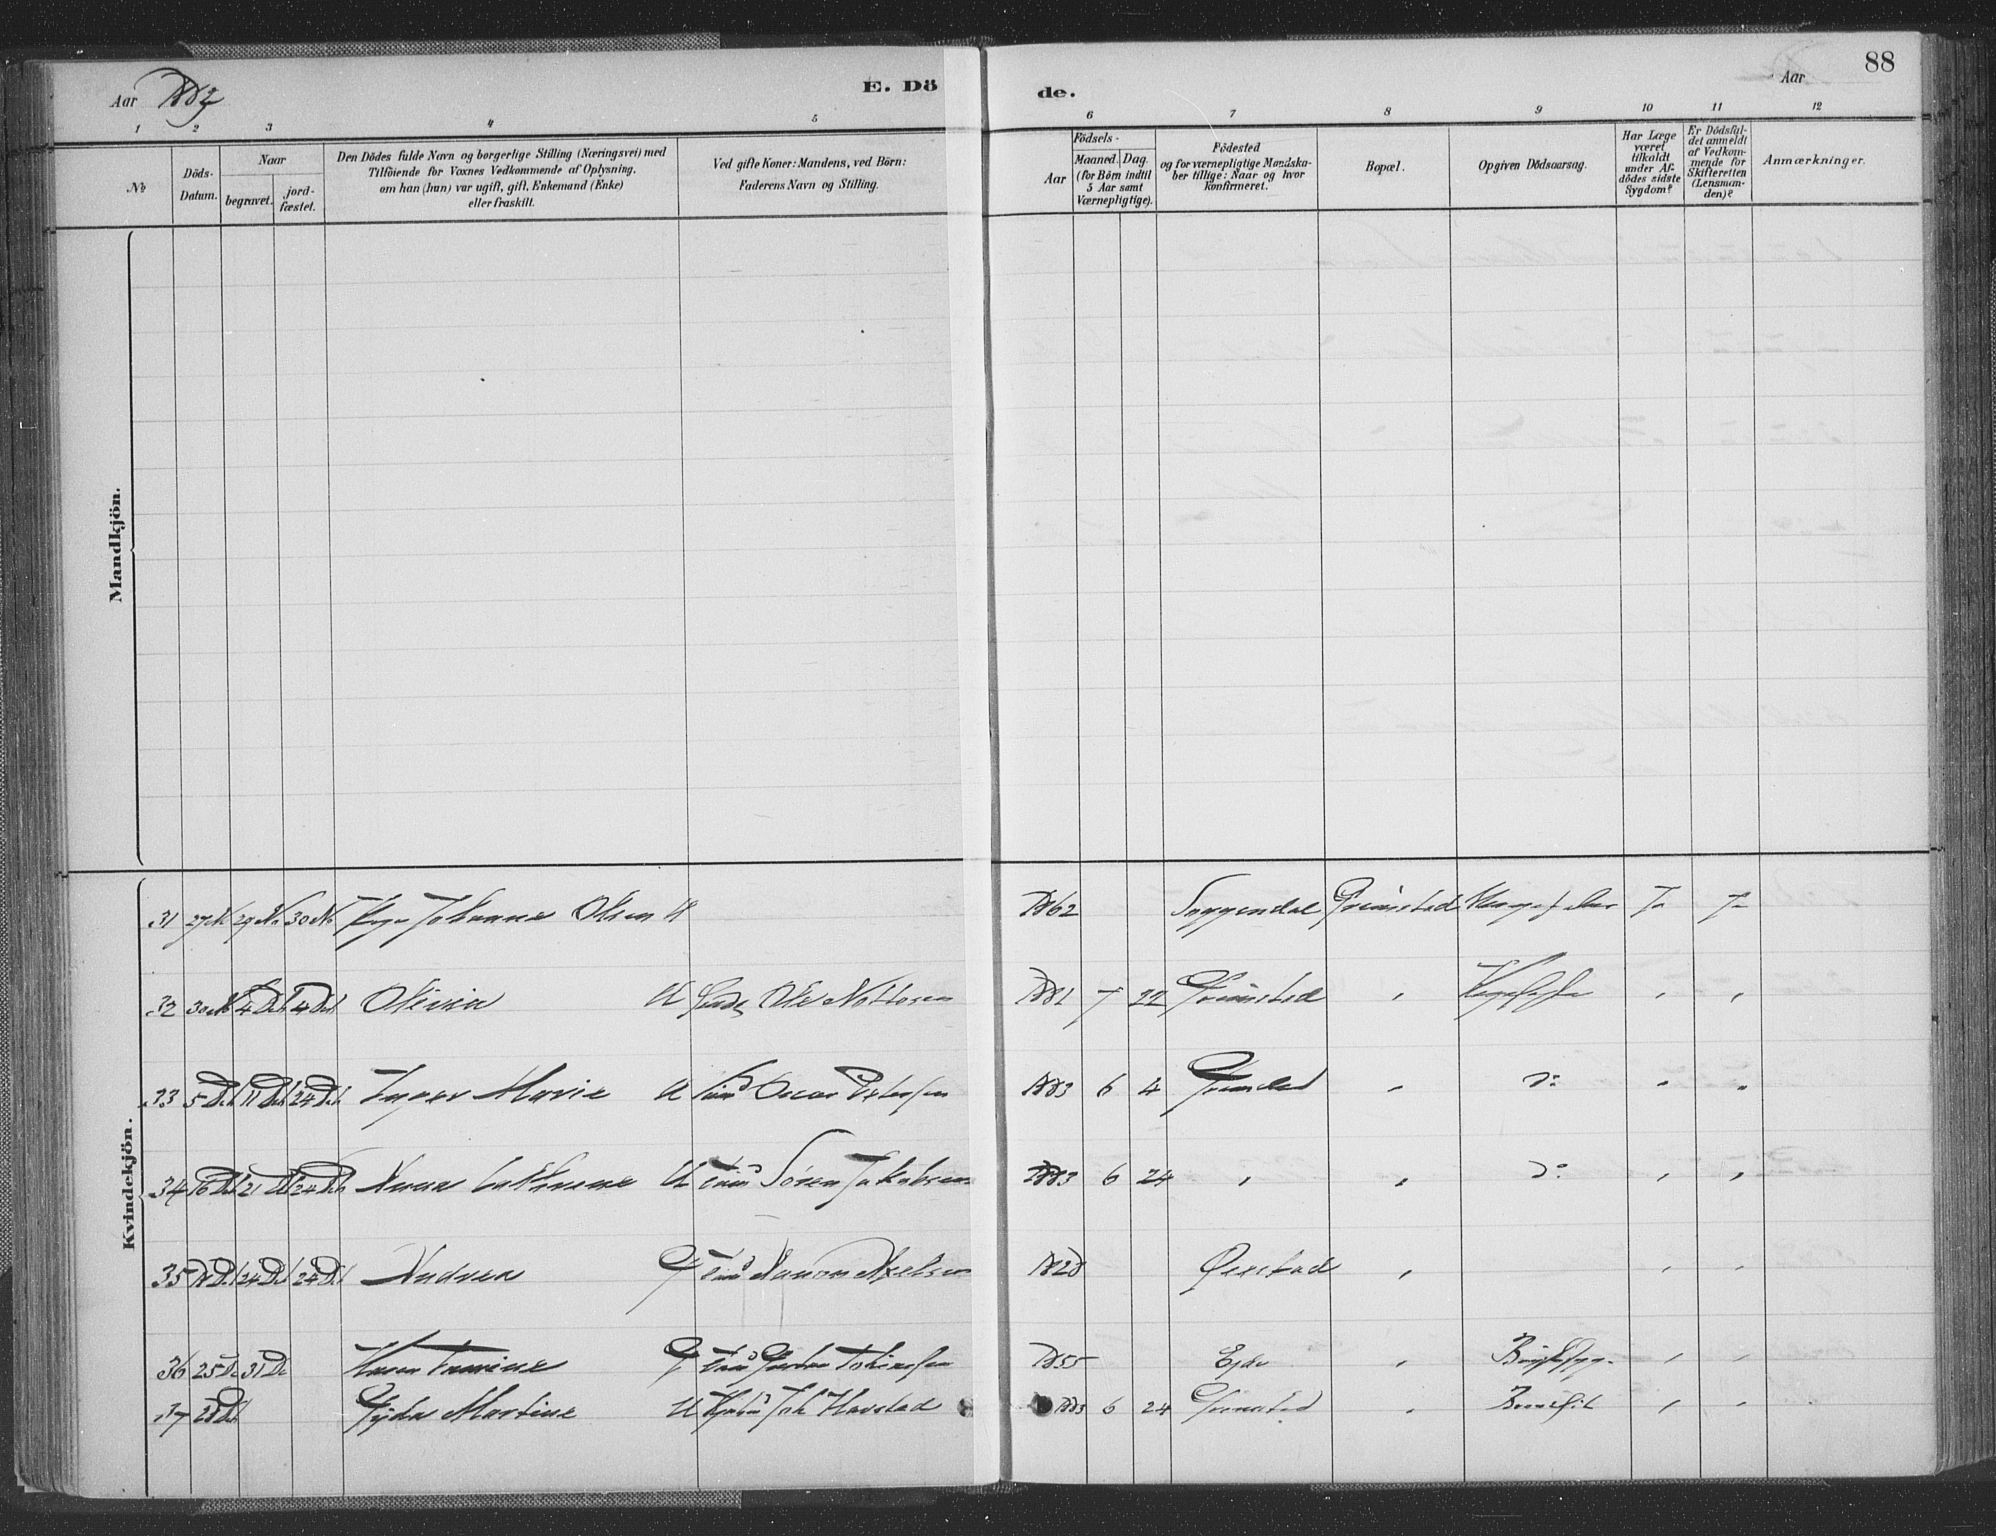 Aar 1883
E. Dö
de.
Aar
88
1 2 3 4 5 6 7 8 9 10 11 12
No
Döds-Datum.
Naar
begravet.
jord-fæstet.
Den Dödes fulde Navn og borgerlige Stilling (Næringsvei) med
Tilföiende for Voxnes Vedkommende af Oplysning,
om han (hun) var ugift, gift, Enkemand (Enke)
eller fraskilt.
Ved gifte Koner: Mandens, ved Börn:
Faderens Navn og Stilling.
Födsels-
Aar
Maaned. Dag.
(for Börn indtil
5 Aar samt
Værnepligtige).
Födested
og for værnepligtige Mandska-
ber tillige: Naar og hvor
konfirmeret.
Bopæl.
Opgiven Dödsaarsag.
Har Læge
været
tilkaldt
under Af-
dödes sidste
Sygdom?
Er Dödsfal-
det anmeldt
af Vedkom-
mende for
Skifteretten
(Lensman-
den)?
Anmærkninger.
Mandkjön.
Kvindekjön.
31 27 N 29 No 30 No Johanne Olsen U 1862 Soggendal Grimstad Ja Ja
32 30 No 4 Dec 4 Dec Olivia U Ole Nottosen 1881 7 22 Grimstad " " "
33 5 Dec 11 Dec 24 Dec Inger Marie U Oscar Petersen 1883 6 4 Grimstad " Do " "
34 16 Dec 21 Dec 24 Dec Anna Cathrine U Sören Jakobsen 1883 6 24 " " Do " "
35 18 Dec 24 Dec 24 Dec Andrea G Axelsen 1828 Øiestad " " "
36 25 De 31 De Karen G 1855 Eide " " "
37 28 Dec Martine U Joh Havstad 1883 6 24 Grimstad " " "